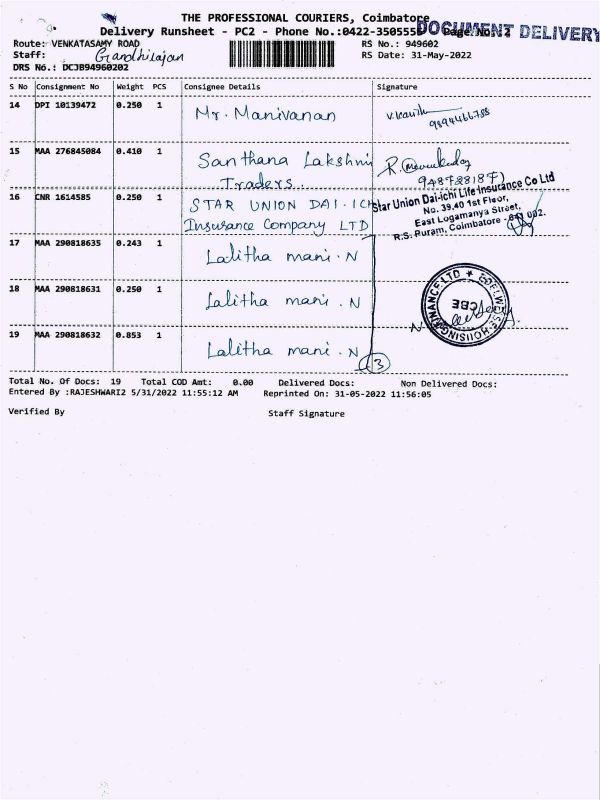 THE PROFESSIONAL COURIERS, Coimbatore
DOCUMENT DELIVERY
Delivery Runsheet - PC2 - Phone No.:0422-3505555 Page No.: 2
Route: VENKATASAMY ROAD RS No.: 949602
Staff: Gandhirajan RS Date: 31-May-2022
DRS No.: DCJB94960202
S No Consignment No Weight PCS Consignee Details Signature
14 DPI 10139472 0.250 1 Mr. Manivanan
15 MAA 276845084 0.410 1 Santhana Lakshmi
Traders.
16 CNR 1614585 0.250 1 STAR UNION DAI.ICHI
Insurance Company LTD
Star Union Dai-ichi Life Insurance Co Ltd
No. 39,40 1st Floor,
East Logamanya Street,
R.S. Puram, Coimbatore - 641 002.
17 MAA 290818635 0.243 1 Lalitha mani . N
18 MAA 290818631 0.250 1 Lalitha mani . N
EDELWEISS HOUSING FINANCE LTD *
CBE
19 MAA 290818632 0.853 1 Lalitha mani . N
3
Total No. Of Docs: 19 Total COD Amt: 0.00 Delivered Docs: Non Delivered Docs:
Entered By :RAJESHWARI2 5/31/2022 11:55:12 AM Reprinted On: 31-05-2022 11:56:05
Verified By Staff Signature